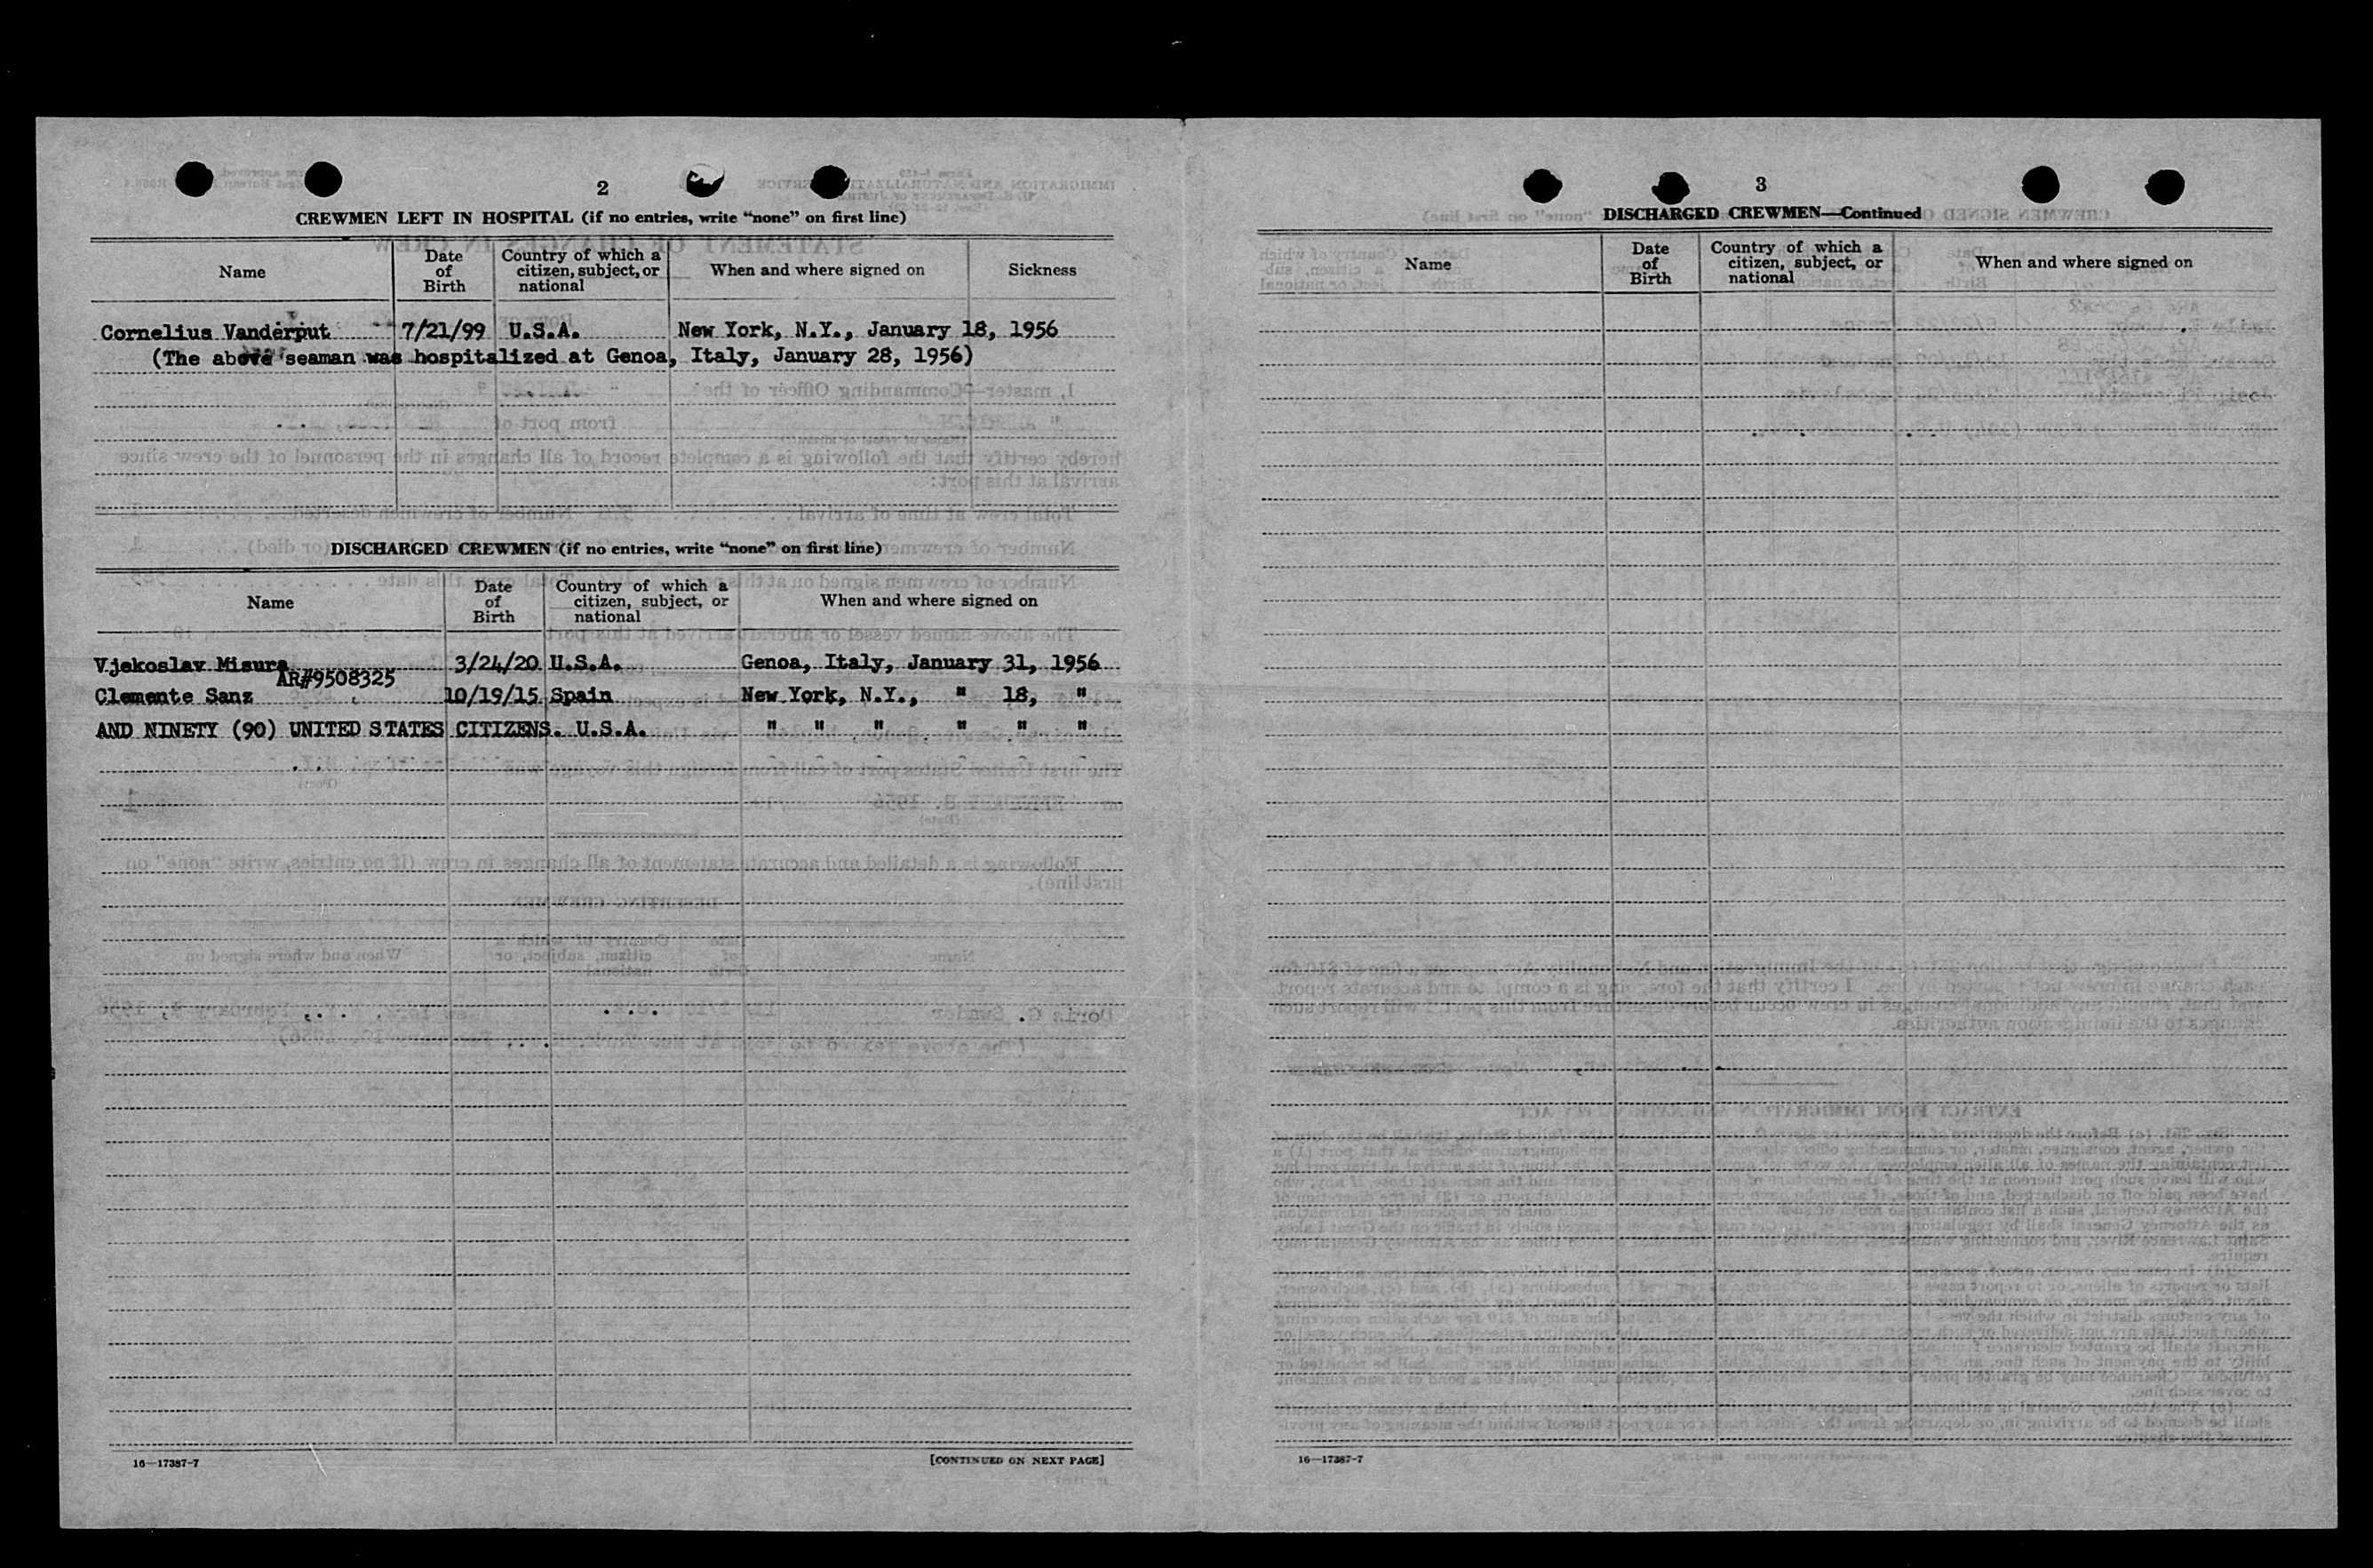 2
CREWMEN LEFT IN HOSPITAL (if no entries, write "none" on first line)
Name
Date of Birth
Country of which a citizen, subject, or national
When and where signed on
Sickness
Cornelius Vanderput 7/21/99 U.S.A. New York, N.Y., January 18, 1956
(The above seaman was hospitalized at Genoa, Italy, January 28, 1956)
DISCHARGED CREWMEN (if no entries, write "none" on first line)
Name
Date of Birth
Country of which a citizen, subject, or national
When and where signed on
Vjekoslav Misura 3/24/20 U.S.A. Genoa, Italy, January 31, 1956
AR#9508325
Clemente Sanz 10/19/15 Spain New York, N.Y., " 18, "
AND NINETY (90) UNITED STATES CITIZENS. U.S.A. " " " " " "
16—17387-7
[CONTINUED ON NEXT PAGE]
3
DISCHARGED CREWMEN—Continued
Name
Date of Birth
Country of which a citizen, subject, or national
When and where signed on
16—17387-7